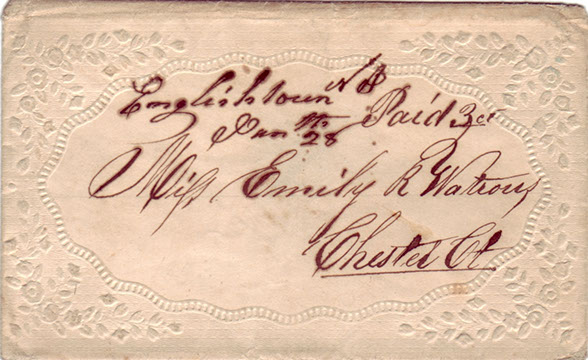 Englishtown N J
Jan 28th Paid 3ct
Miss Emily R Watrous
Chester Ct